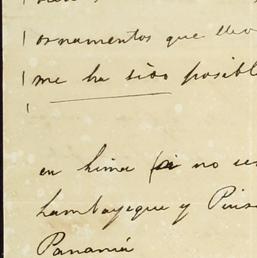 ornamentos que llev
me ha sido posibl
en Lima (si no es
Lambayeque y Piur
Panamá